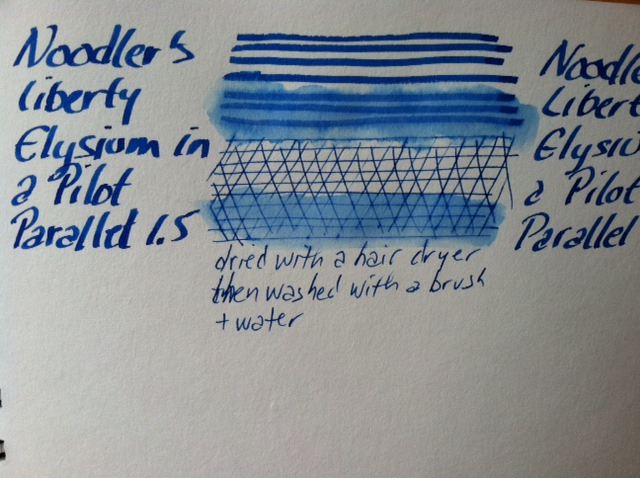 Noodler's
Liberty
Elysium in
a Pilot
Parallel 1.5
dried with a hair dryer
then washed with a brush
+ water
Noodle
Libert
Elysiu
a Pilot
Parallel